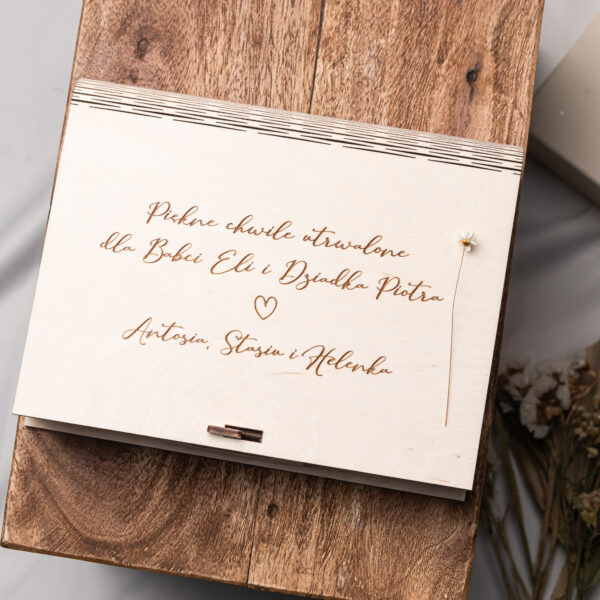 Piękne chwile utrwalone
dla Babci Eli i Dziadka Piotra
Antosia, Stasiu i Helenka